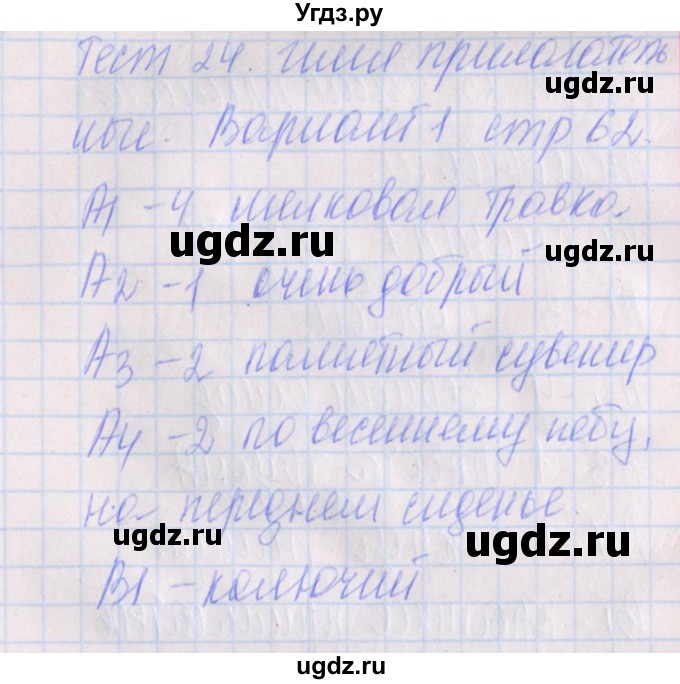 Угдз.ру
Тест 24. Имя прилагатель
ные. Вариант 1 стр 62.
ugdz.ru
А1 - 4 шелковая травка.
ugdz.ru ugdz.ru
А2 - 1 очень добрый
А3 - 2 памятный сувенир
ugdz.ru ugdz.ru
А4 - 2 по весеннему небу,
на переднем сиденье.
ugdz.ru ugdz.ru
В1 - колючий
ugdz.ru